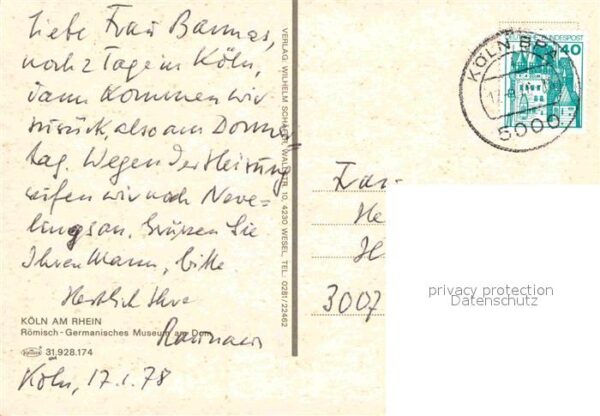 Liebe Frau Bannas,
noch 2 Tage in Köln,
dann kommen wir
zurück, also am Donners-
tag. Wegen der Heizung
rufen wir noch Neve-
lings an. Grüßen Sie
Ihren Mann, bitte
Herzlich Ihre
KÖLN AM RHEIN
Römisch-Germanisches Museum am Dom
31.928.174
Köln, 17.1.78
VERLAG: WILHELM SCHÄFER, WALLSTR. 10, 4230 WESEL, TEL: 0281/22462
KÖLN BPA
5000
BUNDESPOST
40
Frau
3007
privacy protection
Datenschutz